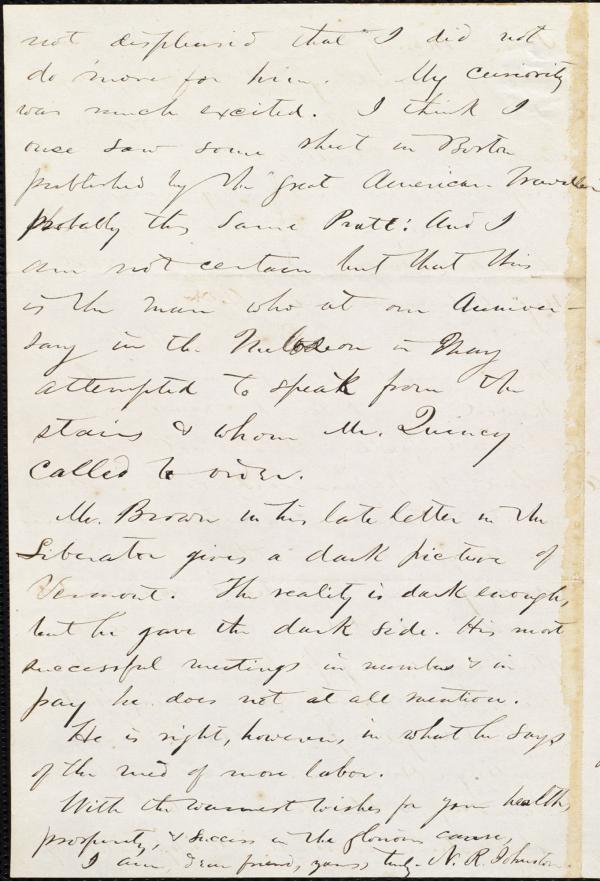 not displeased that I did not
do more for him. My curiosity
was much excited. I think I
once saw some sheet in Boston
published by the "great American Traveller"
probably this same Pratt: And I
am not certain but that this
is the man who at our Anniver-
sary in the Melodeon in May
attempted to speak from the
stairs & whom Mr. Quincy
called to order.
Mr. Brown in his late letter in the
Liberator gives a dark picture of
Vermont. The reality is dark enough,
but he gave the dark side. His most
successful meetings in numbers & in
pay he does not at all mention.
He is right, however, in what he says
of the need of more labor.
With the warmest wishes for your health,
prosperity, & success in the glorious cause,
I am, dear friend, yours truly N. R. Johnston